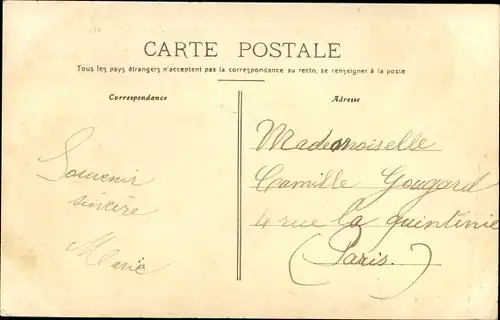 CARTE POSTALE
Tous les pays étrangers n'acceptent pas la correspondance au recto, se renseigner à la poste
Correspondance
Souvenir
sincère
Marie
Adresse
Mademoiselle
Camille Gougard
4 rue la quintinie
(Paris.)